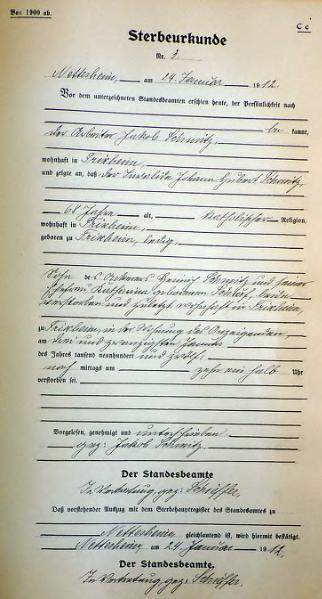 Vor 1900 ab.
C c
Sterbeurkunde
Nr. 3
Nettersheim, am 24. Januar 1912.
Vor dem unterzeichneten Standesbeamten erschien heute, der Persönlichkeit nach
be kannt,
der Arbeiter Jakob Schmitz,
wohnhaft in Frixheim,
und zeigte an, daß der Invalide Johann Hubert Schmitz,
68 Jahre alt, katholischer Religion,
wohnhaft in Frixheim,
geboren zu Frixheim, ledig,
Sohn des Heinrich Schmitz und seiner
Ehefrau Katharina geborenen beide
verstorben und zuletzt wohnhaft in Frixheim,
zu Frixheim, in der Wohnung des Anzeigenden,
am drei und zwanzigsten Januar
des Jahres tausend neunhundert und zwölf,
nach mittags um zehn ein halb Uhr
verstorben sei.
Vorgelesen, genehmigt und unterschrieben
gez: Jakob Schmitz.
Der Standesbeamte
In Vertretung, gez:
Daß vorstehender Auszug mit dem Sterbehauptregister des Standesamts zu
Nettersheim gleichlautend ist, wird hiermit bestätigt.
Nettersheim, am 24. Januar 1912.
Der Standesbeamte.
In Vertretung, gez: